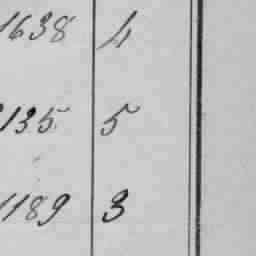 1638 4
135 5
1189 3